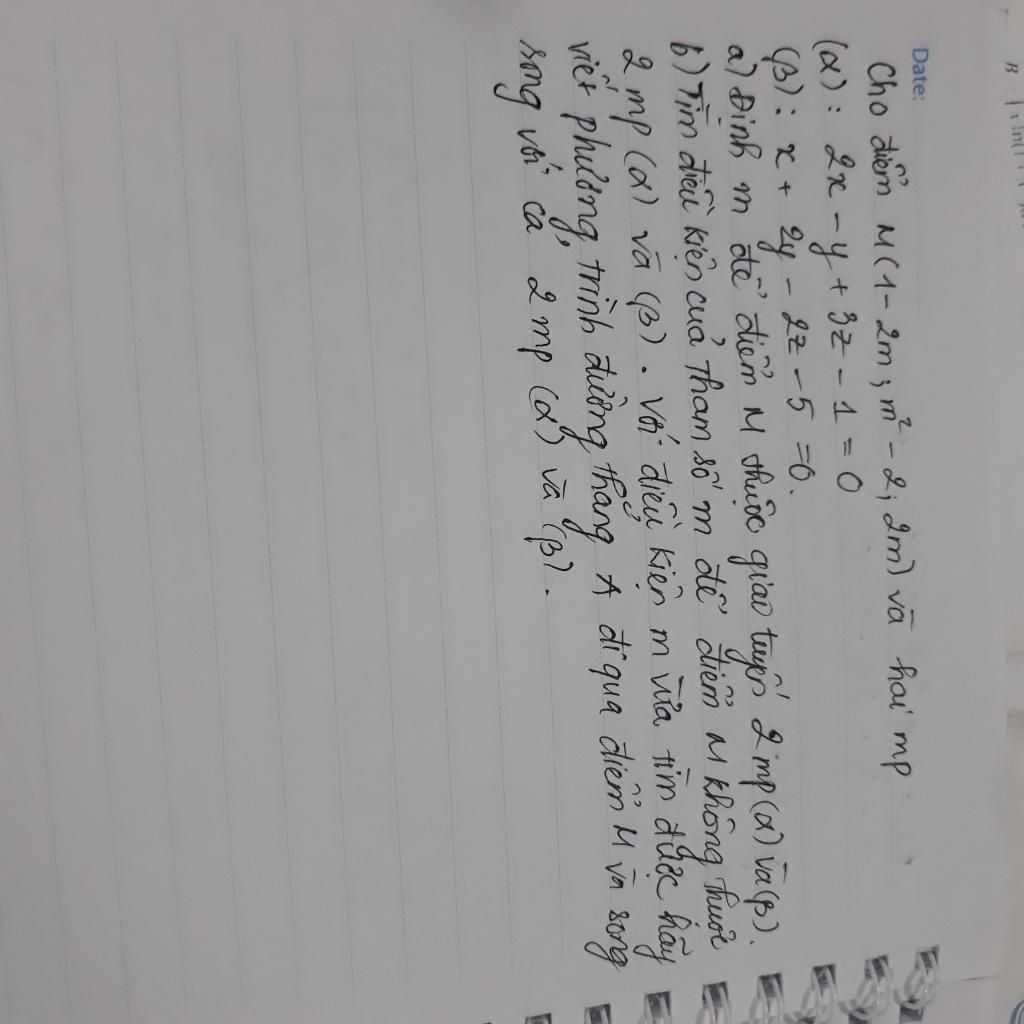 Date:
Cho điểm M(1 - 2m; m² - 2; 2m) và hai mp
(α): 2x - y + 3z - 1 = 0
(β): x + 2y - 2z - 5 = 0.
a) Định m để điểm M thuộc giao tuyến 2 mp(α) và (β).
b) Tìm điều kiện của tham số m để điểm M không thuộc
2 mp (α) và (β). Với điều kiện m vừa tìm được hãy
viết phương trình đường thẳng Δ đi qua điểm M và song
song với cả 2 mp (α) và (β).